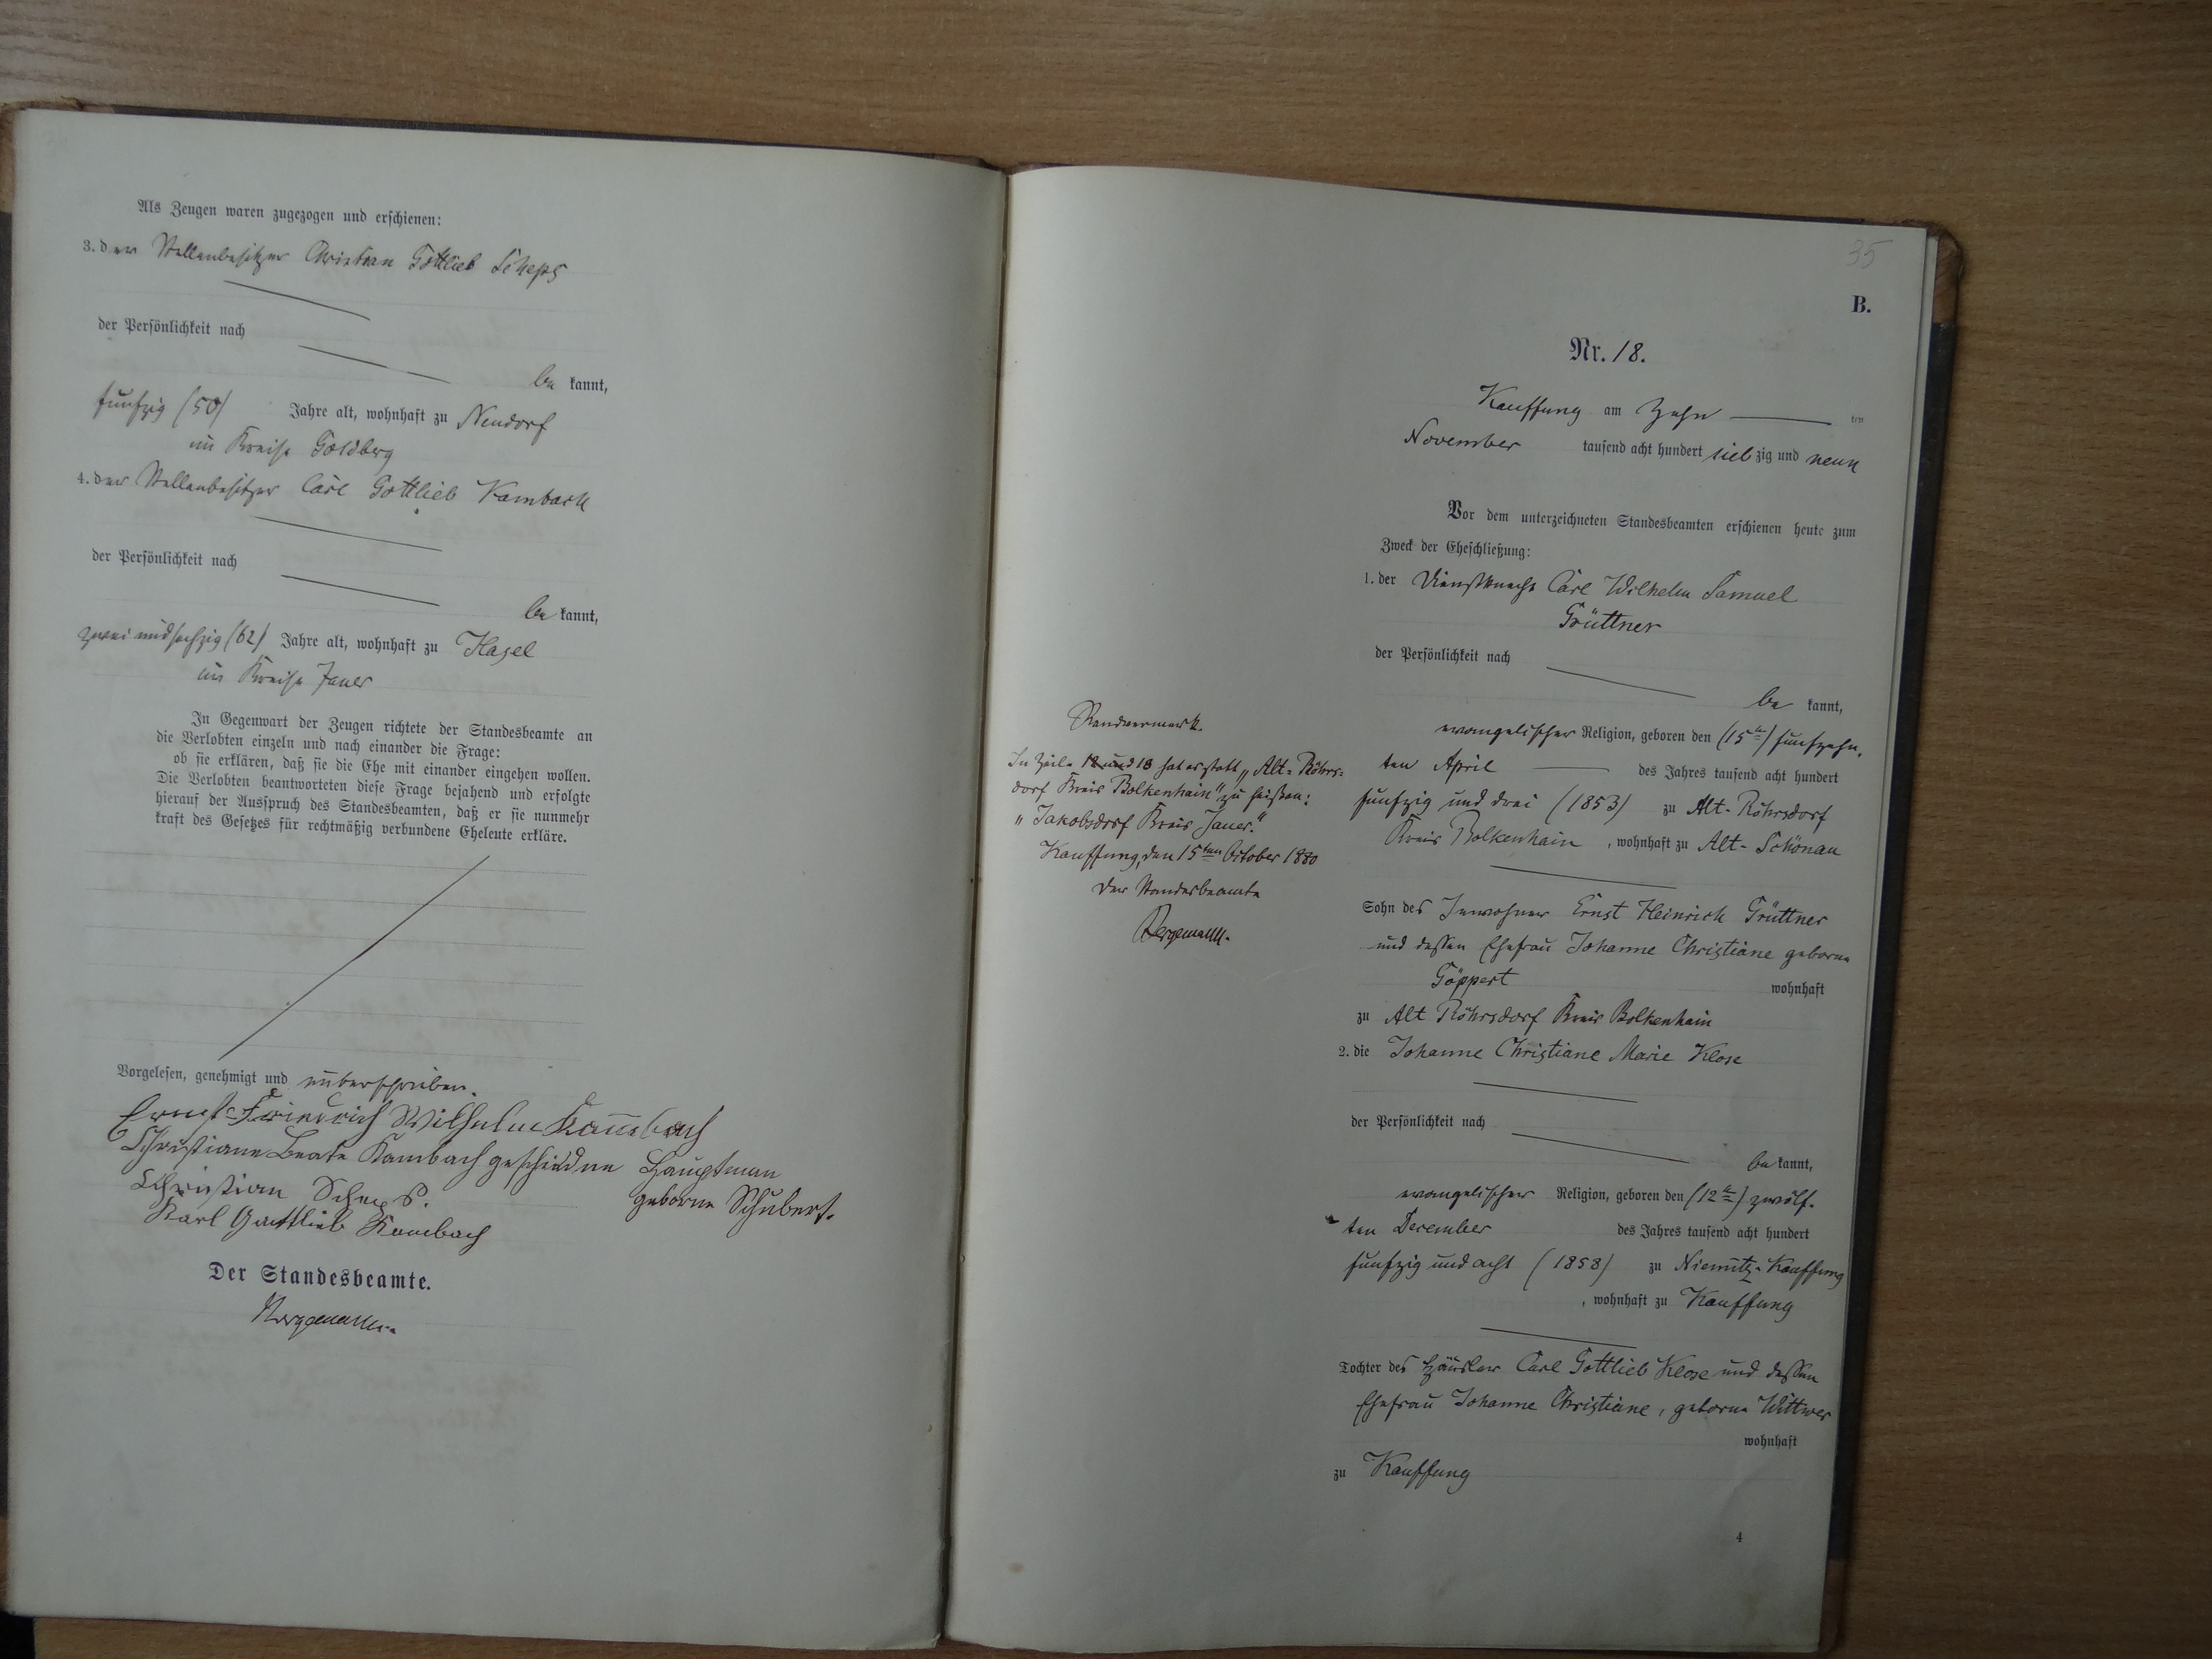 Als Zeugen waren zugezogen und erschienen:
3. der Stellenbesitzer Christian Gottlieb Scheps
der Persönlichkeit nach
be kannt,
funfzig (50) Jahre alt, wohnhaft zu Neudorf
im Kreise Goldberg
4. der Stellenbesitzer Carl Gottlieb Kambach
der Persönlichkeit nach
be kannt,
zwei und sechzig (62) Jahre alt, wohnhaft zu Hasel
im Kreise Jauer
In Gegenwart der Zeugen richtete der Standesbeamte an
die Verlobten einzeln und nach einander die Frage:
ob sie erklären, daß sie die Ehe mit einander eingehen wollen.
Die Verlobten beantworteten diese Frage bejahend und erfolgte
hierauf der Ausspruch des Standesbeamten, daß er sie nunmehr
kraft des Gesetzes für rechtmäßig verbundene Eheleute erkläre.
Vorgelesen, genehmigt und unterschrieben.
Ernst Friedrich Wilhelm Kambach
Christiane Beate Kambach geschiedne Hauptman
geborne Schubert.
Christian Scheps.
Karl Gottlieb Kambach
Der Standesbeamte.
Bergemann.
35
B.
Nr. 18.
Kauffung am Zehn ten
November tausend acht hundert sieb zig und neun
Vor dem unterzeichneten Standesbeamten erschienen heute zum
Zweck der Eheschließung:
1. der Dienstknecht Carl Wilhelm Samuel
Grüttner
der Persönlichkeit nach
be kannt,
evangelischer Religion, geboren den (15te) funfzehn-
ten April des Jahres tausend acht hundert
funfzig und drei (1853) zu Alt-Röhrsdorf
Kreis Bolkenhain, wohnhaft zu Alt-Schönau
Sohn des Inwohner Ernst Heinrich Grüttner
und dessen Ehefrau Johanne Christiane geborne
Göppert wohnhaft
zu Alt Röhrsdorf Kreis Bolkenhain
2. die Johanne Christiane Marie Klose
der Persönlichkeit nach
be kannt,
evangelischer Religion, geboren den (12te) zwölf-
ten December des Jahres tausend acht hundert
funfzig und acht (1858) zu Niemitz-Kauffung
, wohnhaft zu Kauffung
Tochter des Häusler Carl Gottlieb Klose und dessen
Ehefrau Johanne Christiane, geborne Wittwer
wohnhaft
zu Kauffung
4
Randvermerk.
In Zeile 12 und 13 hat es statt „Alt-Röhrs-
dorf Kreis Bolkenhain" zu heißen:
„Jakobsdorf Kreis Jauer."
Kauffung, den 15ten October 1880
Der Standesbeamte
Bergemann.